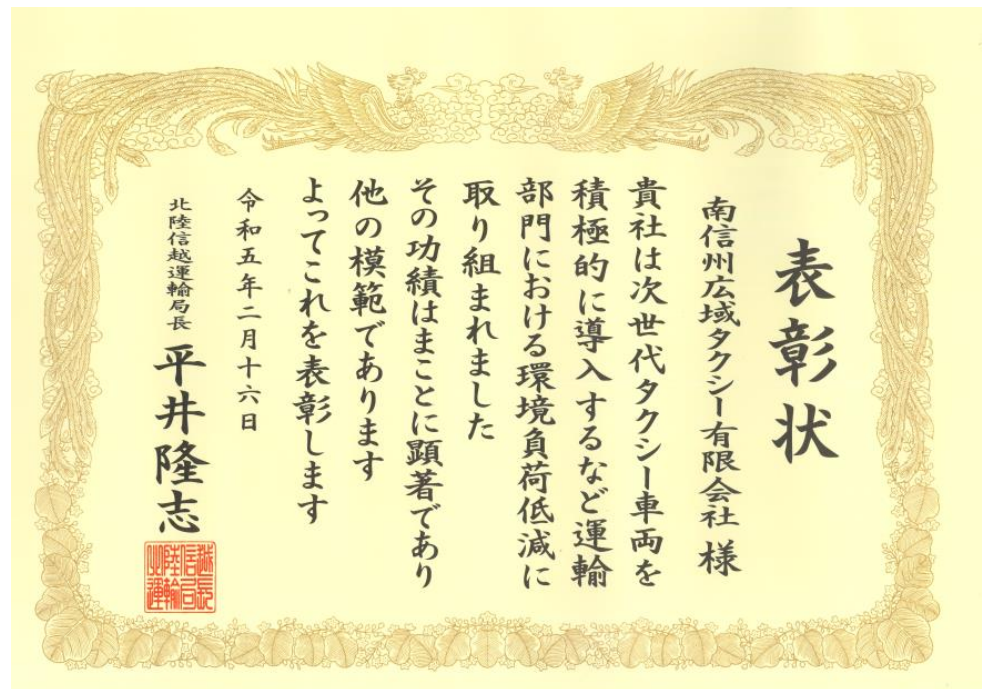 表彰状
南信州広域タクシー有限会社 様
貴社は次世代タクシー車両を
積極的に導入するなど運輸
部門における環境負荷低減に
取り組まれました
その功績はまことに顕著であり
他の模範であります
よってこれを表彰します
令和五年二月十六日
北陸信越運輸局長 平井隆志
越信陸北
長局輸運